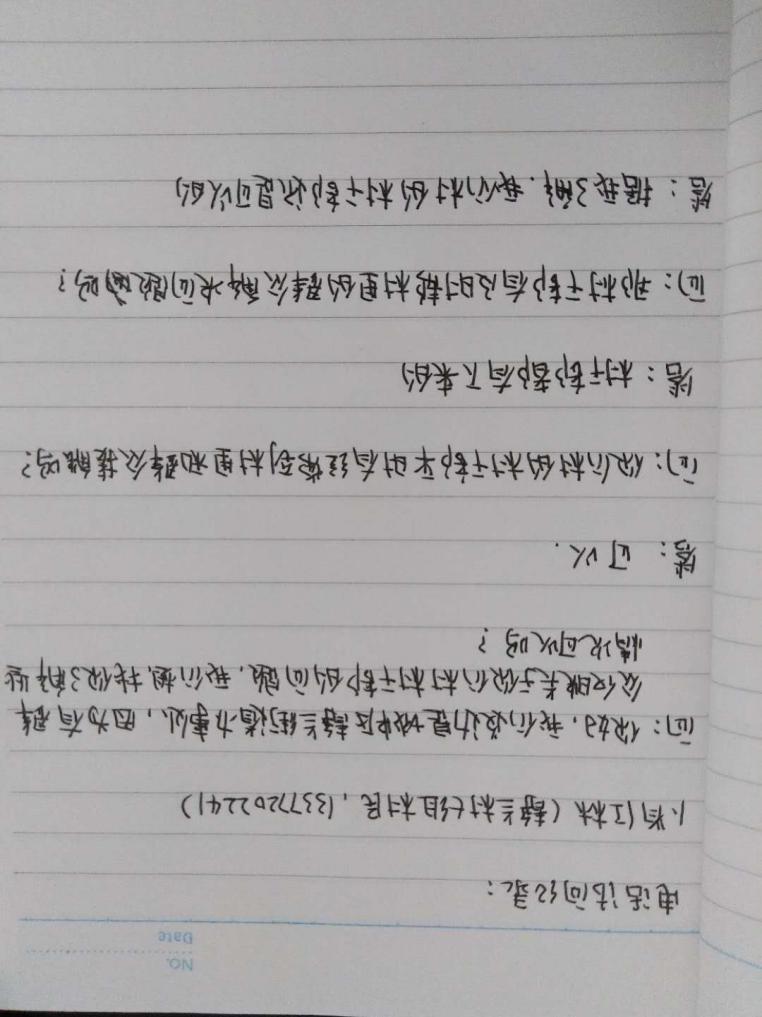 NO.
Date
电话访问纪录:
1、肖江林(静兰村七组村民,13377202241)
问:你好,我们这边是城中区静兰街道办事处,因为有群
众反映关于你们村村干部的问题,我们想找你了解些
情况可以吗?
答:可以.
问:你们村的村干部平时有经常到村里和群众接触吗?
答:村干部都有下来的
问:那村干部有及时帮村里的群众解决问题吗?
答:据我了解.我们村的村干部还是可以的